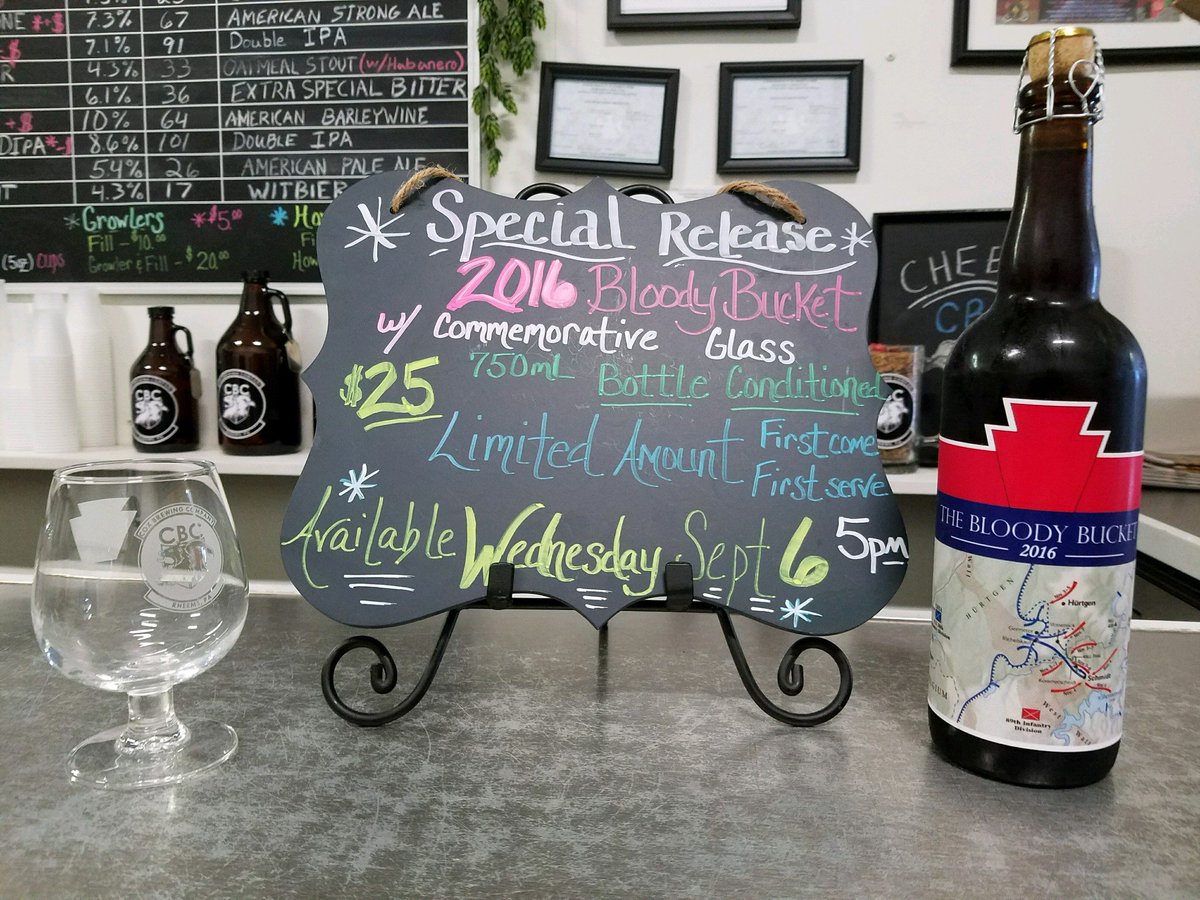 7.3% 67 AMERICAN STRONG ALE
7.1% 91 Double IPA
4.3% 33 OATMEAL STOUT (w/Habanero)
6.1% 36 EXTRA SPECIAL BITTER
10% 64 AMERICAN BARLEYWINE
DIPA 8.6% 101 DOUBLE IPA
5.4% 26 AMERICAN PALE ALE
4.3% 17 WITBIER
Growlers *$5.00
Fill - $10.00
Growler & Fill - $20.00
(5oz) CUPS
Special Release
2016 Bloody Bucket
w/ Commemorative Glass
$25 750mL Bottle Conditioned
Limited Amount First come
First serve
Available Wednesday Sept 6 5pm
CBC
CBC
COX BREWING COMPANY
CBC
RHEEMS, PA
THE BLOODY BUCKET
2016
HÜRTGEN
Hürtgen
Schmidt
89th Infantry
Division